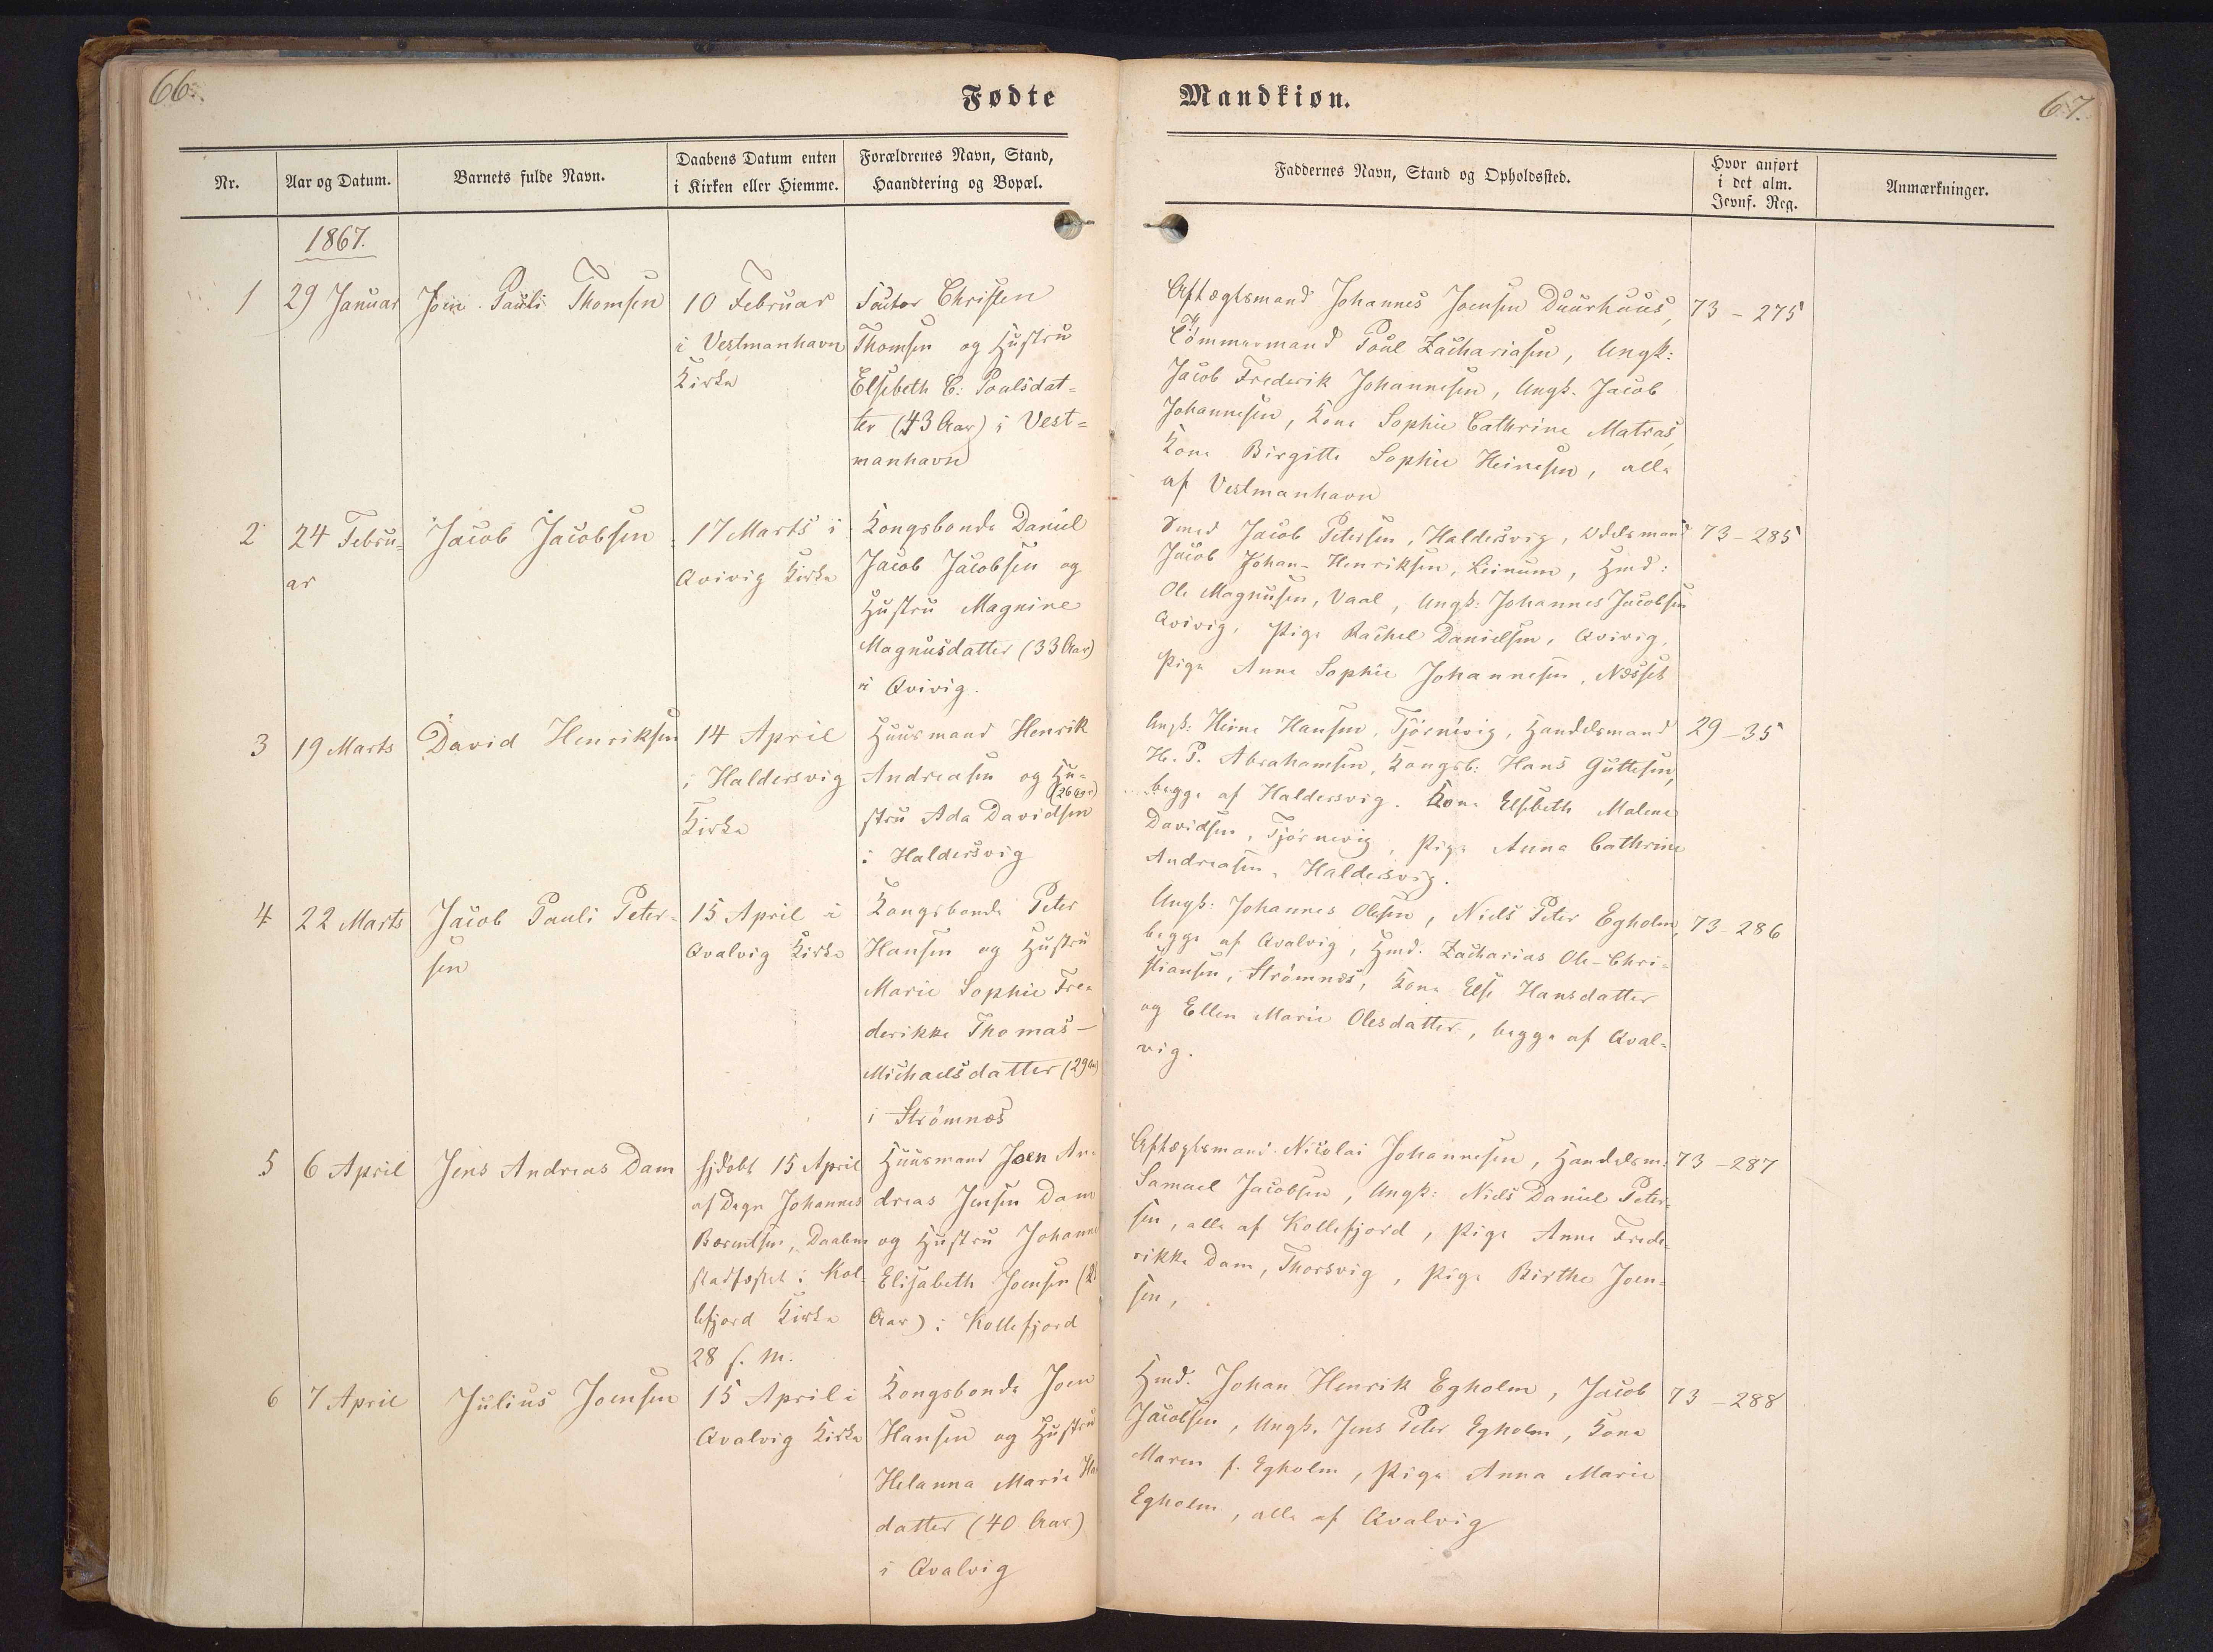 66.
Fødte
Mandkiøn.
67.
Nr.
Aar og Datum.
Barnets fulde Navn.
Daabens Datum enten
i Kirken eller Hiemme.
Forældrenes Navn, Stand,
Haandtering og Bopæl.
Faddernes Navn, Stand og Opholdssted.
Hvor anført
i det alm.
Jevnf. Reg.
Anmærkninger.
1867.
1
29 Januar
Joen Pauli Thomsen
10 Februar
i Vestmanhavn
Kirke
Factor Christen
Thomsen og Hustru
Elsebeth C: Poulsdat=
ter (43 Aar) i Vest=
manhavn
Aftægtsmand Johannes Joensen Duurhuus,
Tömmermand Poul Zachariasen, Ungk:
Jacob Frederik Johannesen, Ungk. Jacob
Johannesen, Kone Sophie Cathrine Matras,
Kone Birgitte Sophie Heinesen, alle
af Vestmanhavn
73 - 275
2
24 Febru=
ar
Jacob Jacobsen
17 Marts i
Qvivig Kirke
Kongsbonde Daniel
Jacob Jacobsen og
Hustru Magnine
Magnusdatter (33 Aar)
i Qvivig.
Smed Jacob Petersen, Haldersvig, Odelsmand
Jacob Johan Henriksen, Leinum, Hmd:
Ole Magnusen, Vaal, Ungk: Johannes Jacobsen
Qvivig, Pige Rachel Danielsen, Qvivig,
Pige Anne Sophie Johannesen, Næsset
73 - 285
3
19 Marts
David Henriksen
14 April
i Haldersvig
Kirke
Huusmand Henrik
Andreasen og Hu=
(26 Aar)
stru Ada Davidsen
i Haldersvig
Ungk: Heine Hansen, Tjörnevig, Handelsmand
H. P. Abrahamsen, Kongsb: Hans Guttesen,
begge af Haldersvig. Kone Elsebeth Malene
Davidsen, Tjörnevig, Pige Anna Cathrine
Andreasen, Haldersvig.
29 - 35
4
22 Marts
Jacob Pauli Peter=
sen
15 April i
Qvalvig Kirke
Kongsbonde Peter
Hansen og Hustru
Marie Sophie Fre=
derikke Thomas-
Michaelsdatter (29 Aar)
i Strömnæs
Ungk: Johannes Olesen, Niels Peter Egholm,
begge af Qvalvig, Hmd. Zacharias Ole-Chri=
stiansen, Strömnæs, Kone Else Hansdatter
og Ellen Marie Olesdatter, begge af Qval=
vig.
73 - 286
5
6 April
Jens Andreas Dam
hjdöbt 15 April
af Degn Johannes
Berentsen, Daaben
stadfæstet i Kol=
lefjord Kirke
28 s. M.
Huusmand Joen An=
dreas Jensen Dam
og Hustru Johanne
Elisabeth Joensen
Aar) i Kollefjord
Aftægtsmand Nicolai Johannesen, Handelsm:
Samuel Jacobsen, Ungk: Niels Daniel Peter=
sen, alle af Kollefjord, Pige Anne Frede=
rikke Dam, Thorsvig, Pige Birthe Joen=
sen,
73 - 287
6
7 April
Julius Joensen
15 April i
Qvalvig Kirke
Kongsbonde Joen
Hansen og Hustru
Helanna Marie
datter (40 Aar)
i Qvalvig
Hmd. Johan Henrik Egholm, Jacob
Jacobsen, Ungk. Jens Peter Egholm, Kone
Maren f. Egholm, Pige Anna Marie
Egholm, alle af Qvalvig
73 - 288